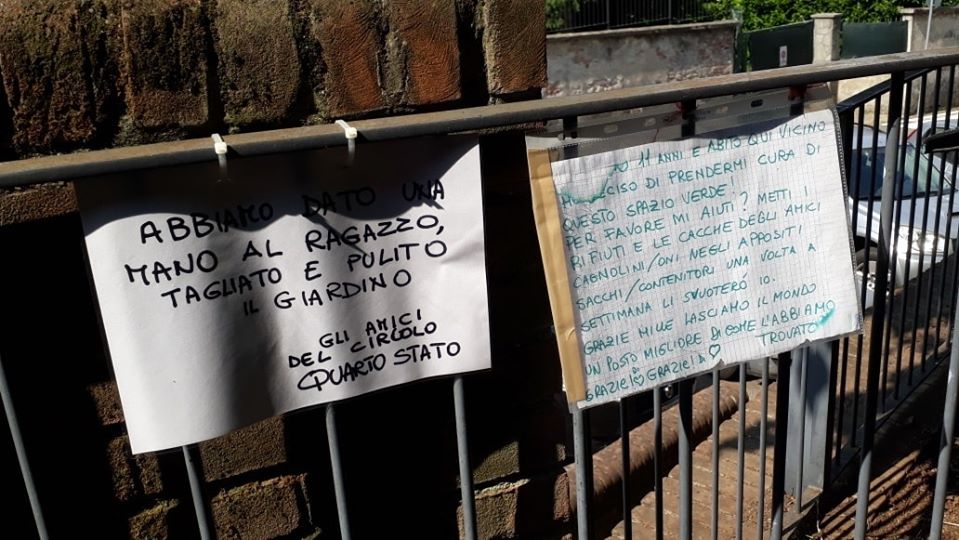 ABBIAMO DATO UNA
MANO AL RAGAZZO,
TAGLIATO E PULITO
IL GIARDINO
GLI AMICI
DEL CIRCOLO
QUARTO STATO
11 ANNI E ABITO QUI VICINO
DI PRENDERMI CURA DI
QUESTO SPAZIO VERDE!
PER FAVORE MI AIUTI? METTI I
RIFIUTI E LE CACCHE DEGLI AMICI
CAGNOLINI/ONI NEGLI APPOSITI
SACCHI/CONTENITORI UNA VOLTA A
SETTIMANA LI SVUOTERÓ IO.
GRAZIE MILLE LASCIAMO IL MONDO
UN POSTO MIGLIORE DI COME L'ABBIAMO
TROVATO
GRAZIE! GRAZIE!